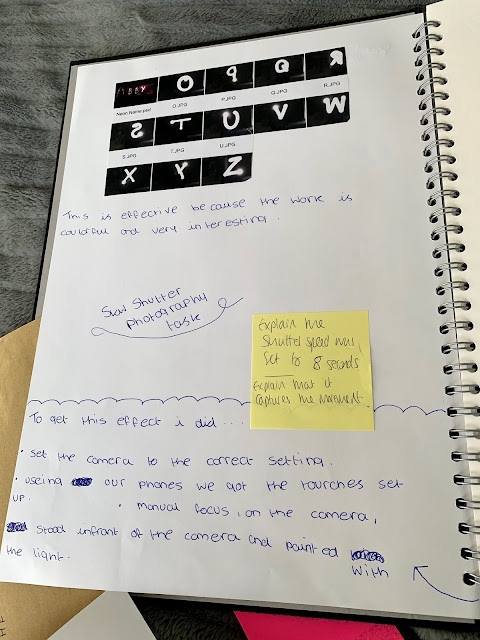 O.JPG P.JPG Q.JPG R.JPG
Neon Name.psd
S.JPG T.JPG U.JPG
This is effective because the work is
coulorful and very interesting.
Slow Shutter
photography
task
Explain the
Shutter speed was
Set to 8 seconds
Explain that it
captures the movement.
To get this effect i did...
· set the camera to the correct setting.
· useing our phones we got the tourches set
up. · manual focus, on the camera,
Stood infront of the camera and painted
With
the light.